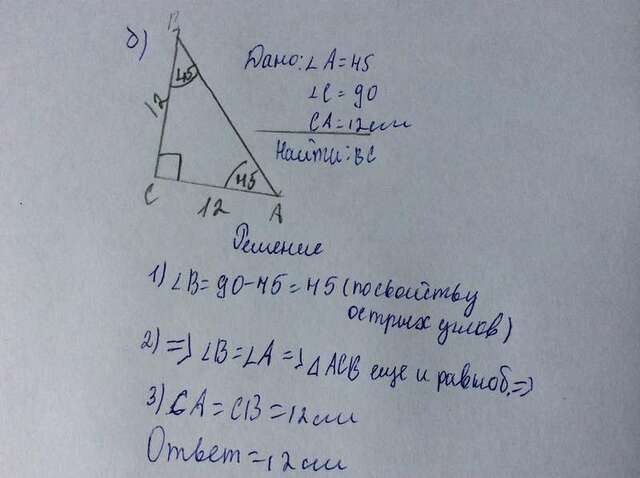 б)
B
45
12
C
12
45
A
Дано: ∠A=45
∠C=90
CA=12см
Найти: BC
Решение
1) ∠B=90-45=45 (по свойству
острых углов)
2) => ∠B=∠A => △ACB еще и равноб. =>
3) CA=CB=12см
Ответ=12см